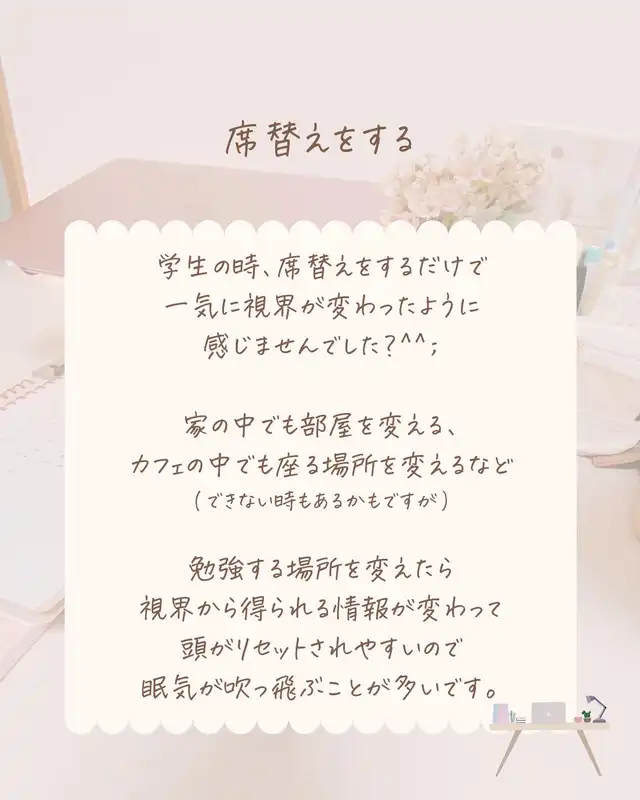 席替えをする
学生の時、席替えをするだけで
一気に視界が変わったように
感じませんでした？^^;
家の中でも部屋を変える、
カフェの中でも座る場所を変えるなど
(できない時もあるかもですが)
勉強する場所を変えたら
視界から得られる情報が変わって
頭がリセットされやすいので
眠気が吹っ飛ぶことが多いです。